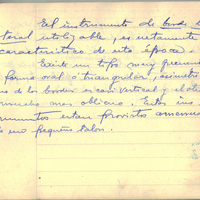 El instrumento de borde la
teral retocable, es netamente
característico de esta época.
Existe un tipo muy frecuente
forma oval o triangular, asimétri
de los bordes es casi vertical y el otro
mucho mas oblicuo. Estos ins
mentos estan provistos
no pequeño talon.